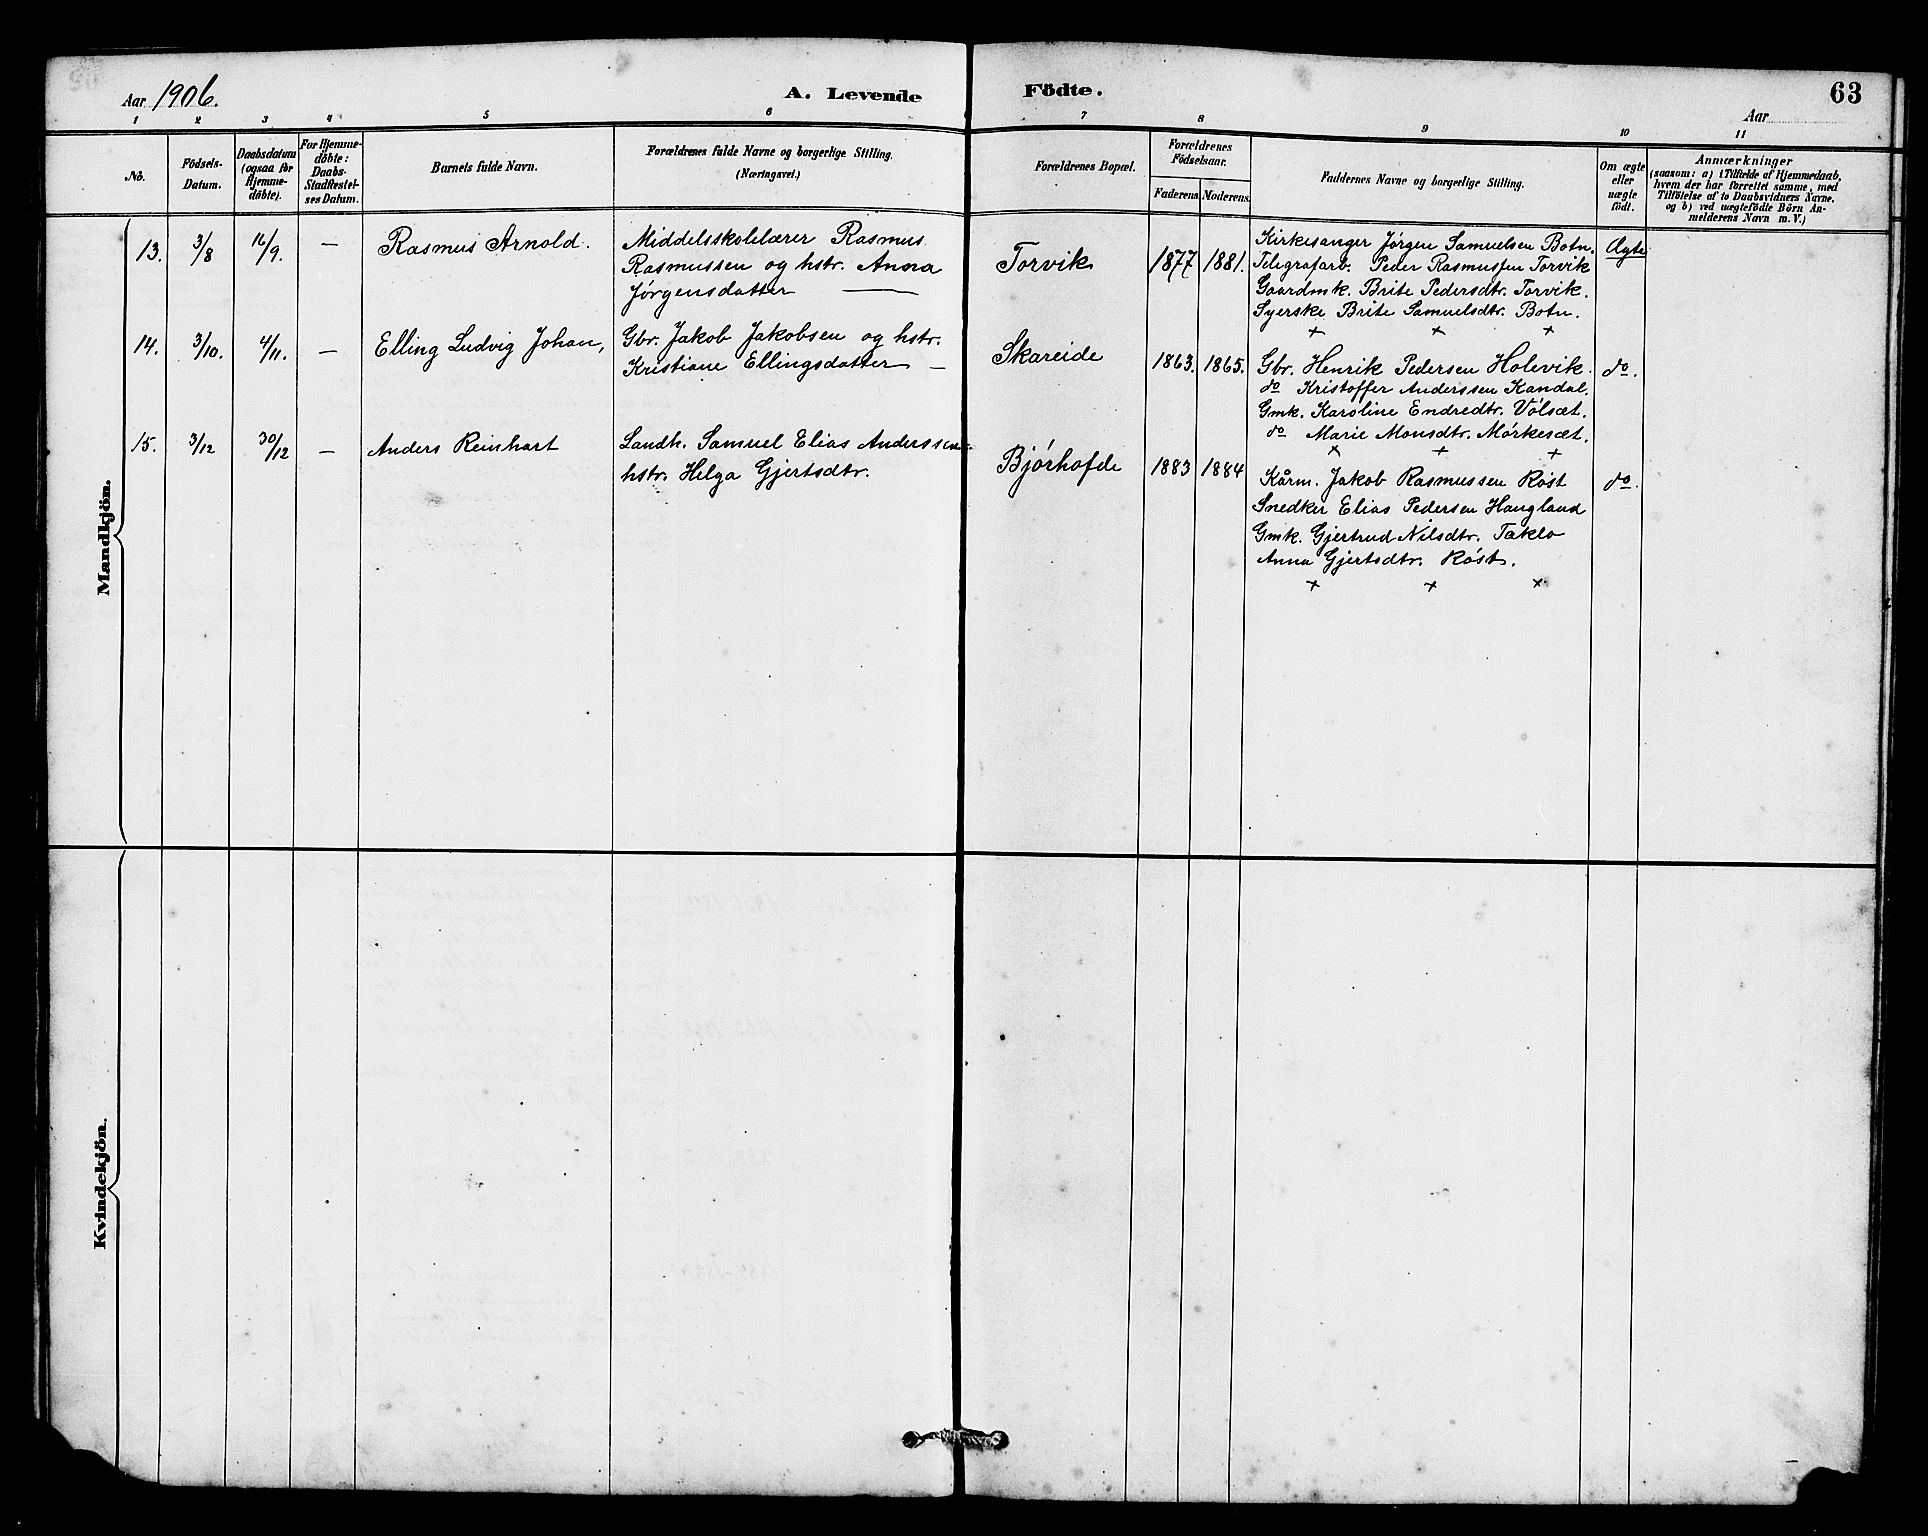 Aar 1906.
A. Levende Födte.
63
Aar
1 2 3 4 5 6 7 8 9 10 11
No.
Födsels-
Datum.
Daabsdatum
(ogsaa for
Hjemme-
döbte).
For Hjemme-
döbte:
Daabs-
Stadfæstel-
ses Datum.
Barnets fulde Navn.
Forældrenes fulde Navne og borgerlige Stilling.
(Næringsvei.)
Forældrenes Bopæl.
Forældrenes
Födselsaar.
Faderens. Moderens.
Faddernes Navne og borgerlige Stilling.
Om ægte
eller
uægte
födt.
Anmærkninger
(saasom: a) i Tilfælde af Hjemmedaab,
hvem der har forrettet samme, med
Tilföielse af to Daabsvidners Navne.
og b) ved uægtefödte Börn An-
melderens Navn m. V.)
Mandkjön.
13. 3/8 16/9. — Rasmus Arnold.
Middelsskolelærer Rasmus
Rasmussen og hstr. Anna
Jørgensdatter —
Torvik 1877 1881.
Kirkesanger Jørgen Samuelsen Botn.
Telegrafarb. Peder Rasmussen Torvik
Gaardmk. Brite Pedersdtr. Torvik.
Syerske Brite Samuelsdtr. Botn.
+ + +
Ægte
14. 3/10. 4/11. — Elling Ludvig Johan,
Gbr. Jakob Jakobsen og hstr.
Kristiane Ellingsdatter —
Skareide 1863. 1865.
Gbr. Henrik Pedersen Holevik.
do Kristoffer Anderssen Kandal.
Gmk. Karoline Endredtr. Völsæt.
do Marie Monsdtr. Mörkesæt.
+ + +
do.
15. 3/12 30/12 — Anders Reinhart
Landh. Samuel Elias Anderssen
hstr. Helga Gjertsdtr.
Bjórhofde 1883 1884
Kårm. Jakob Rasmussen Róst
Snedker Elias Pedersen Haugland
Gmk. Gjertrud Nilsdtr. Taklo
Anna Gjertsdtr. Róst.
+ + +
do.
Kvindekjön.